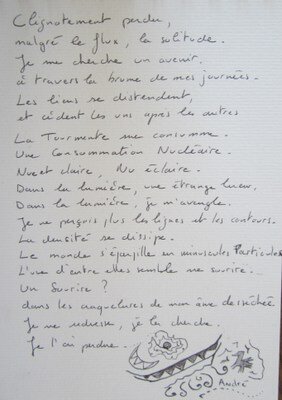 Clignotement perdu,
malgré le flux, la solitude.
Je me cherche un avenir.
à travers la brume de mes journées.
Les liens se distendent,
et cèdent les uns après les autres
La Tourmente me consumme.
Une Consummation Nucléaire.
Nue et claire, Nu éclaire.
Dans la lumière, une étrange lueur.
Dans la lumière, je m'aveugle.
Je ne perçois plus les lignes et les contours.
La densité se dissipe.
Le monde s'éparpille en minuscules Particules
L'une d'entre elles semble me sourire.
Un Sourire ?
dans les engelures de mon âme desséchée
Je me redresse, je la cherche.
Je l'ai perdue.
André